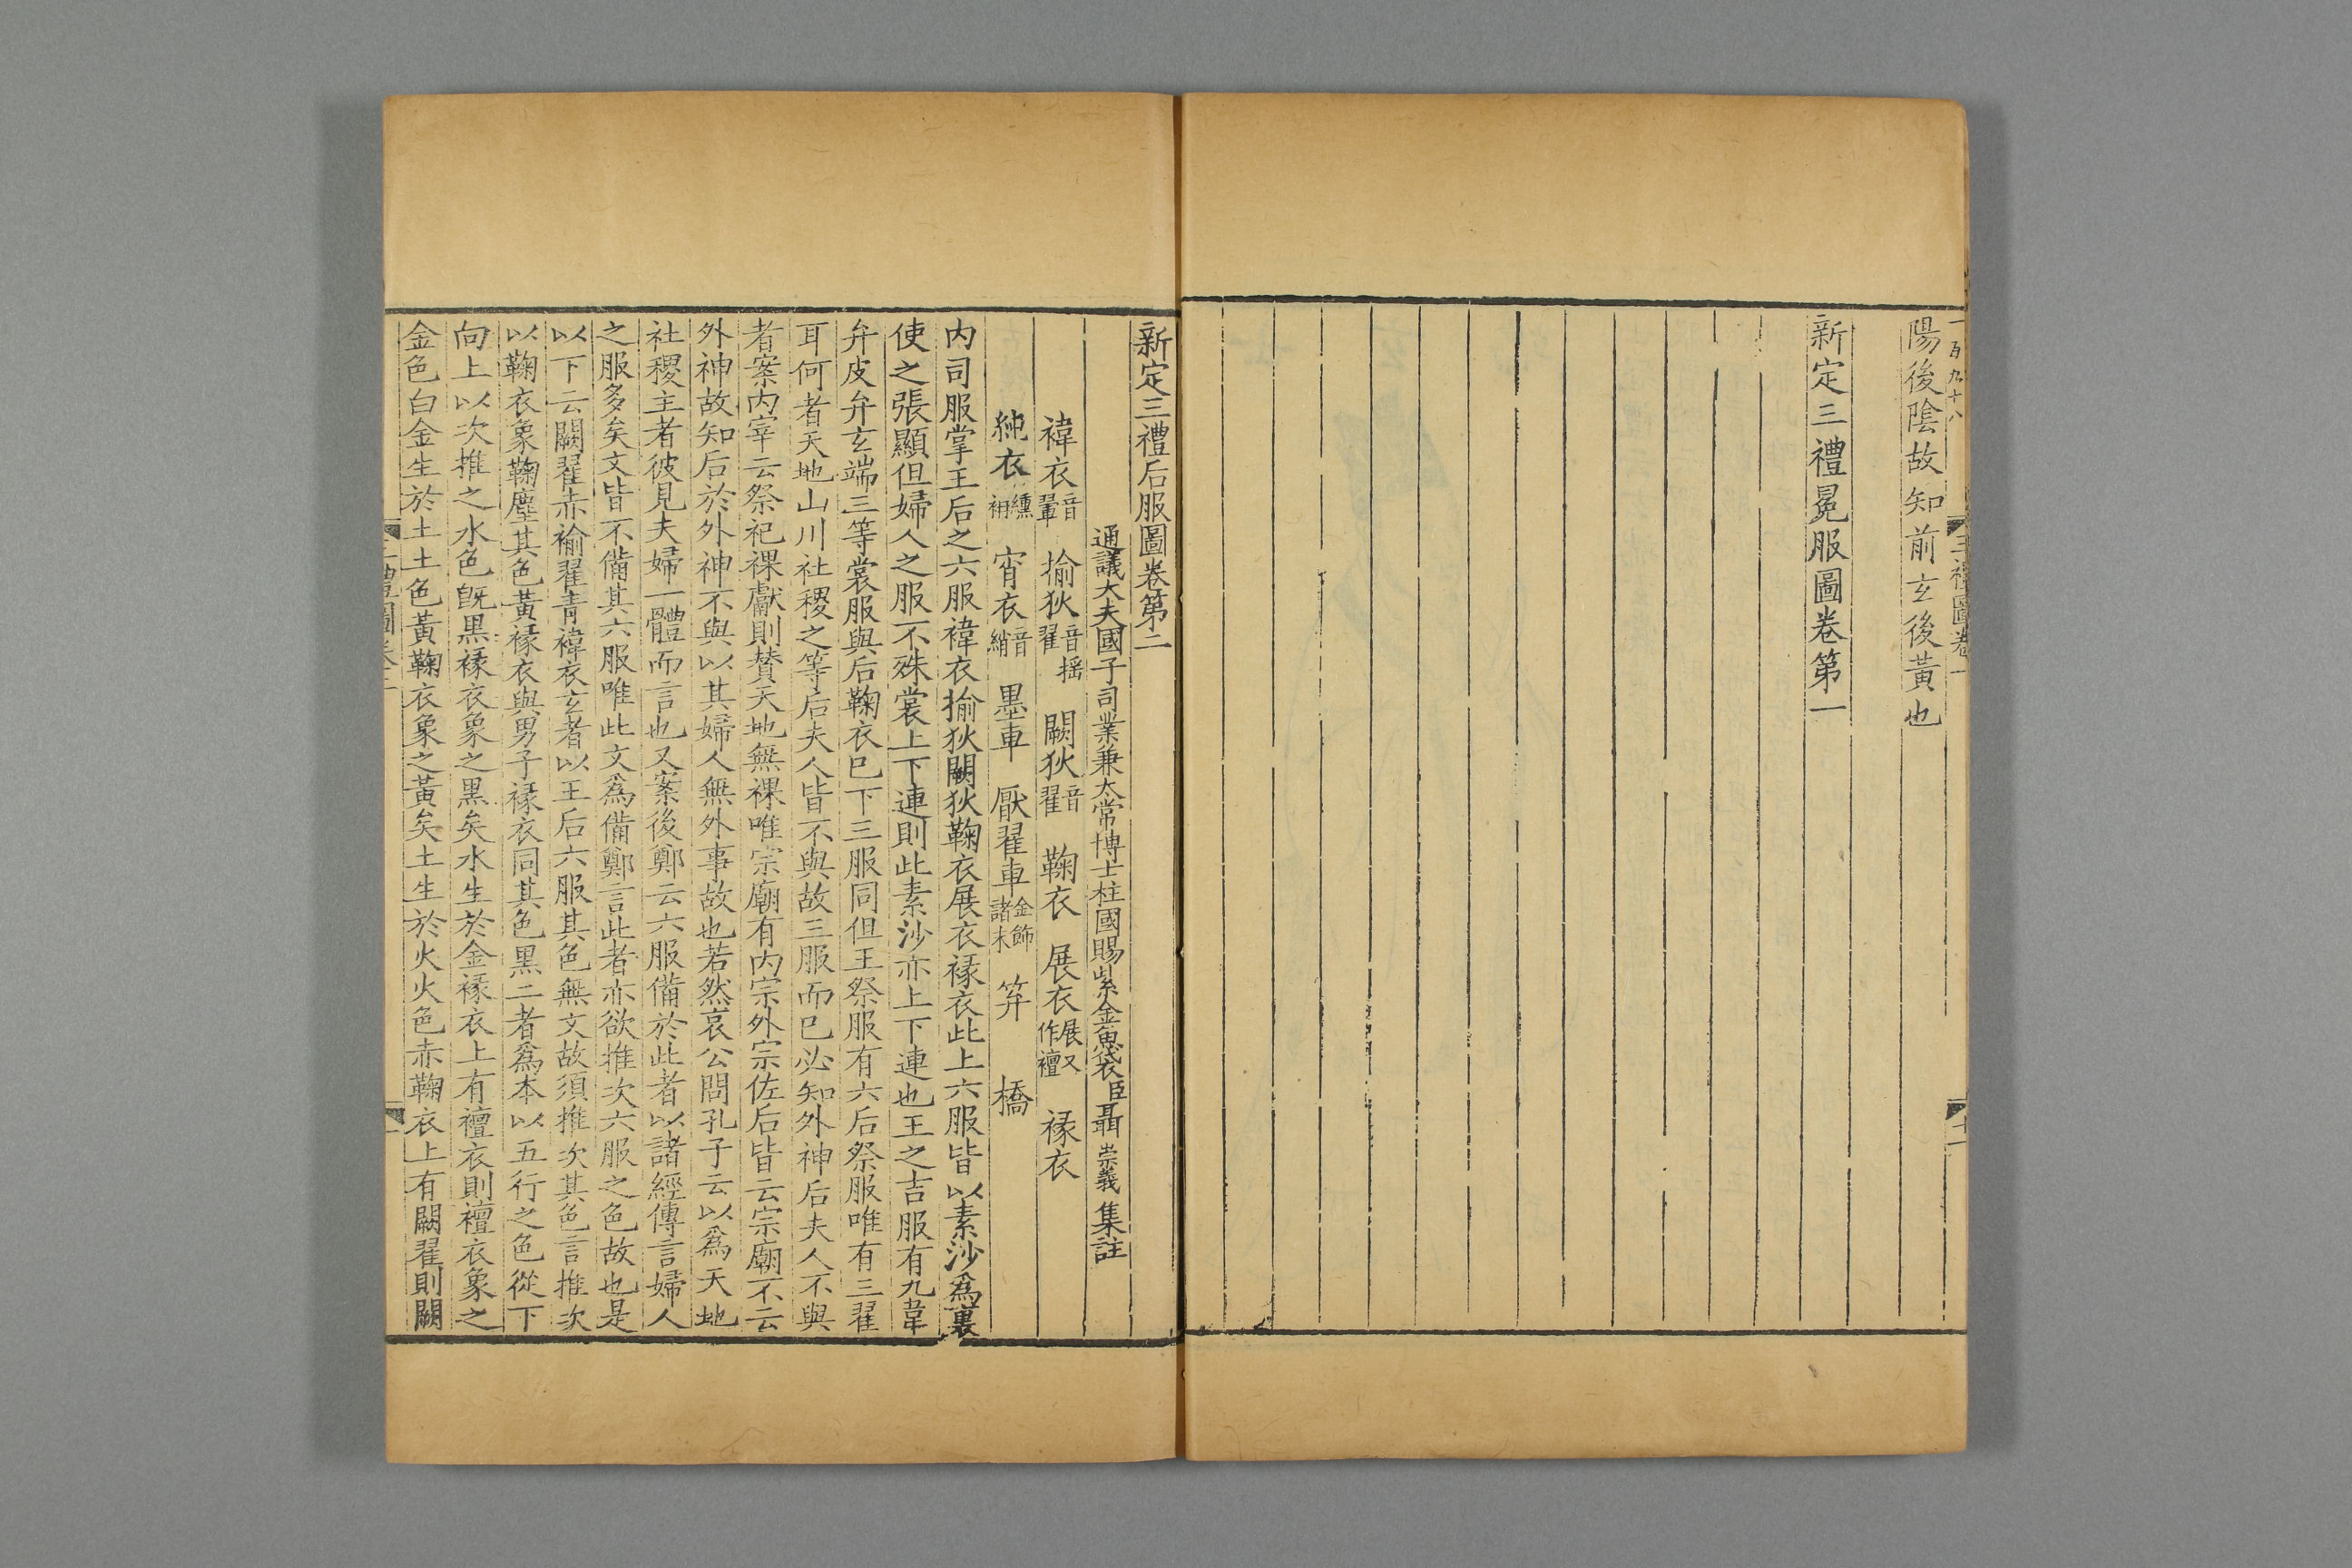 一百九十八
三禮圖卷一
十一
陽後陰故知前玄後黃也
新定三禮冕服圖卷第一
新定三禮后服圖卷第二
通議大夫國子司業兼太常博士柱國賜紫金魚袋臣聶崇義集註
褘衣音翬 揄狄音搖翟 闕狄音翟 鞠衣 展衣展又作襢 褖衣
純衣纁袡 宵衣音綃 墨車 厭翟車金飾諸末 笲 橋
內司服掌王后之六服褘衣揄狄闕狄鞠衣展衣褖衣此上六服皆以素沙爲裏
使之張顯但婦人之服不殊裳上下連則此素沙亦上下連也王之吉服有九韋
弁皮弁玄端三等裳服與后鞠衣已下三服同但王祭服有六后祭服唯有三翟
耳何者天地山川社稷之等后夫人皆不與故三服而已必知外神后夫人不與
者案內宰云祭祀祼獻則賛天地無祼唯宗廟有內宗外宗佐后皆云宗廟不云
外神故知后於外神不與以其婦人無外事故也若然哀公問孔子云以爲天地
社稷主者彼見夫婦一體而言也又案後鄭云六服備於此者以諸經傳言婦人
之服多矣文皆不備其六服唯此文爲備鄭言此者亦欲推次六服之色故也是
以下云闕翟赤褕翟青褘衣玄者以王后六服其色無文故須推次其色言推次
以鞠衣象鞠塵其色黃褖衣與男子褖衣同其色黑二者爲本以五行之色從下
向上以次推之水色旣黑褖衣象之黑矣水生於金褖衣上有襢衣則襢衣象之
金色白金生於土土色黃鞠衣象之黃矣土生於火火色赤鞠衣上有闕翟則闕